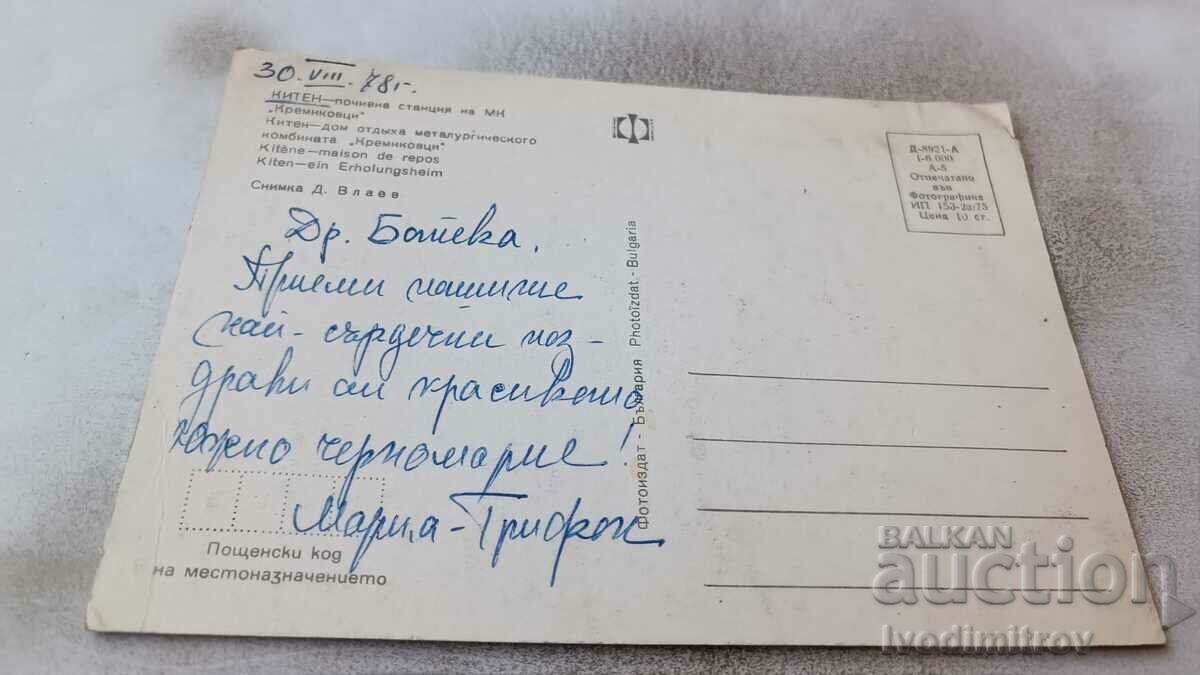 30. VIII. 78г.
КИТЕН—почивна станция на МК
„Кремиковци"
Китен—дом отдыха металургического
комбината „Кремиковци"
Kitène—maison de repos
Kiten—ein Erholungsheim
Снимка Д. Влаев
Др. Ботева,
Приеми нашите
най-сърдечни поз-
драви от красивото
южно черноморие!
Мария-Трифон
Пощенски код
на местоназначението
Фотоиздат - България Photoizdat - Bulgaria
Д-8921-А
1-6.000
А-5
Отпечатано
във
Фотографика
ИП 153-23/75
Цена 10 ст.
BALKAN
auction
Ivodimitrov